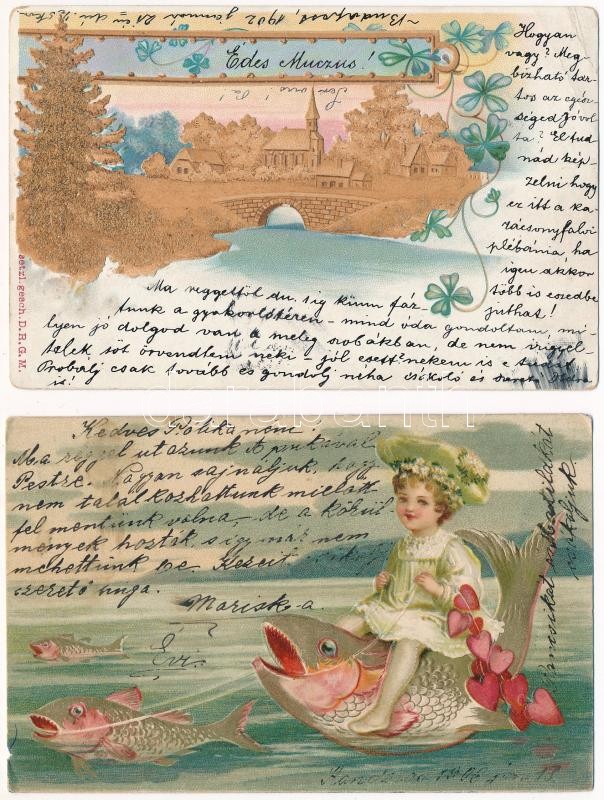 Budapest, 1902 január 21
Édes Muczus!
Hogyan
vagy? Meg-
bizható tar-
tos az egész-
séged jó vol
ta? El tud-
nád kép-
zelni hogy
ez itt a ka-
rácsonyfalvi
plébánia, ha
igen akkor
több is eszedbe
juthat!
Ma reggeltöl du. ig künn fáz-
tunk a gyakorlótéren mind óda gondoltam, mi-
lyen jó dolgod van a meleg szobákban, de nem irigyel-
telek, söt örvendtem neki jól esett nekem is
Probálj csak tovább és gondolj néha csókoló és
is!
setzl. gesch. D.R.G.M.
Kedves Pólika néni!
Ma reggel utazunk
Pestre. Nagyon sajnáljuk, hogy
nem találkozhattunk mielőtt
fel mentünk volna, de a körül
mények hozták, s így már nem
mehettünk be. Kezeit
szerető huga.
Mariska.
Évi.
1906